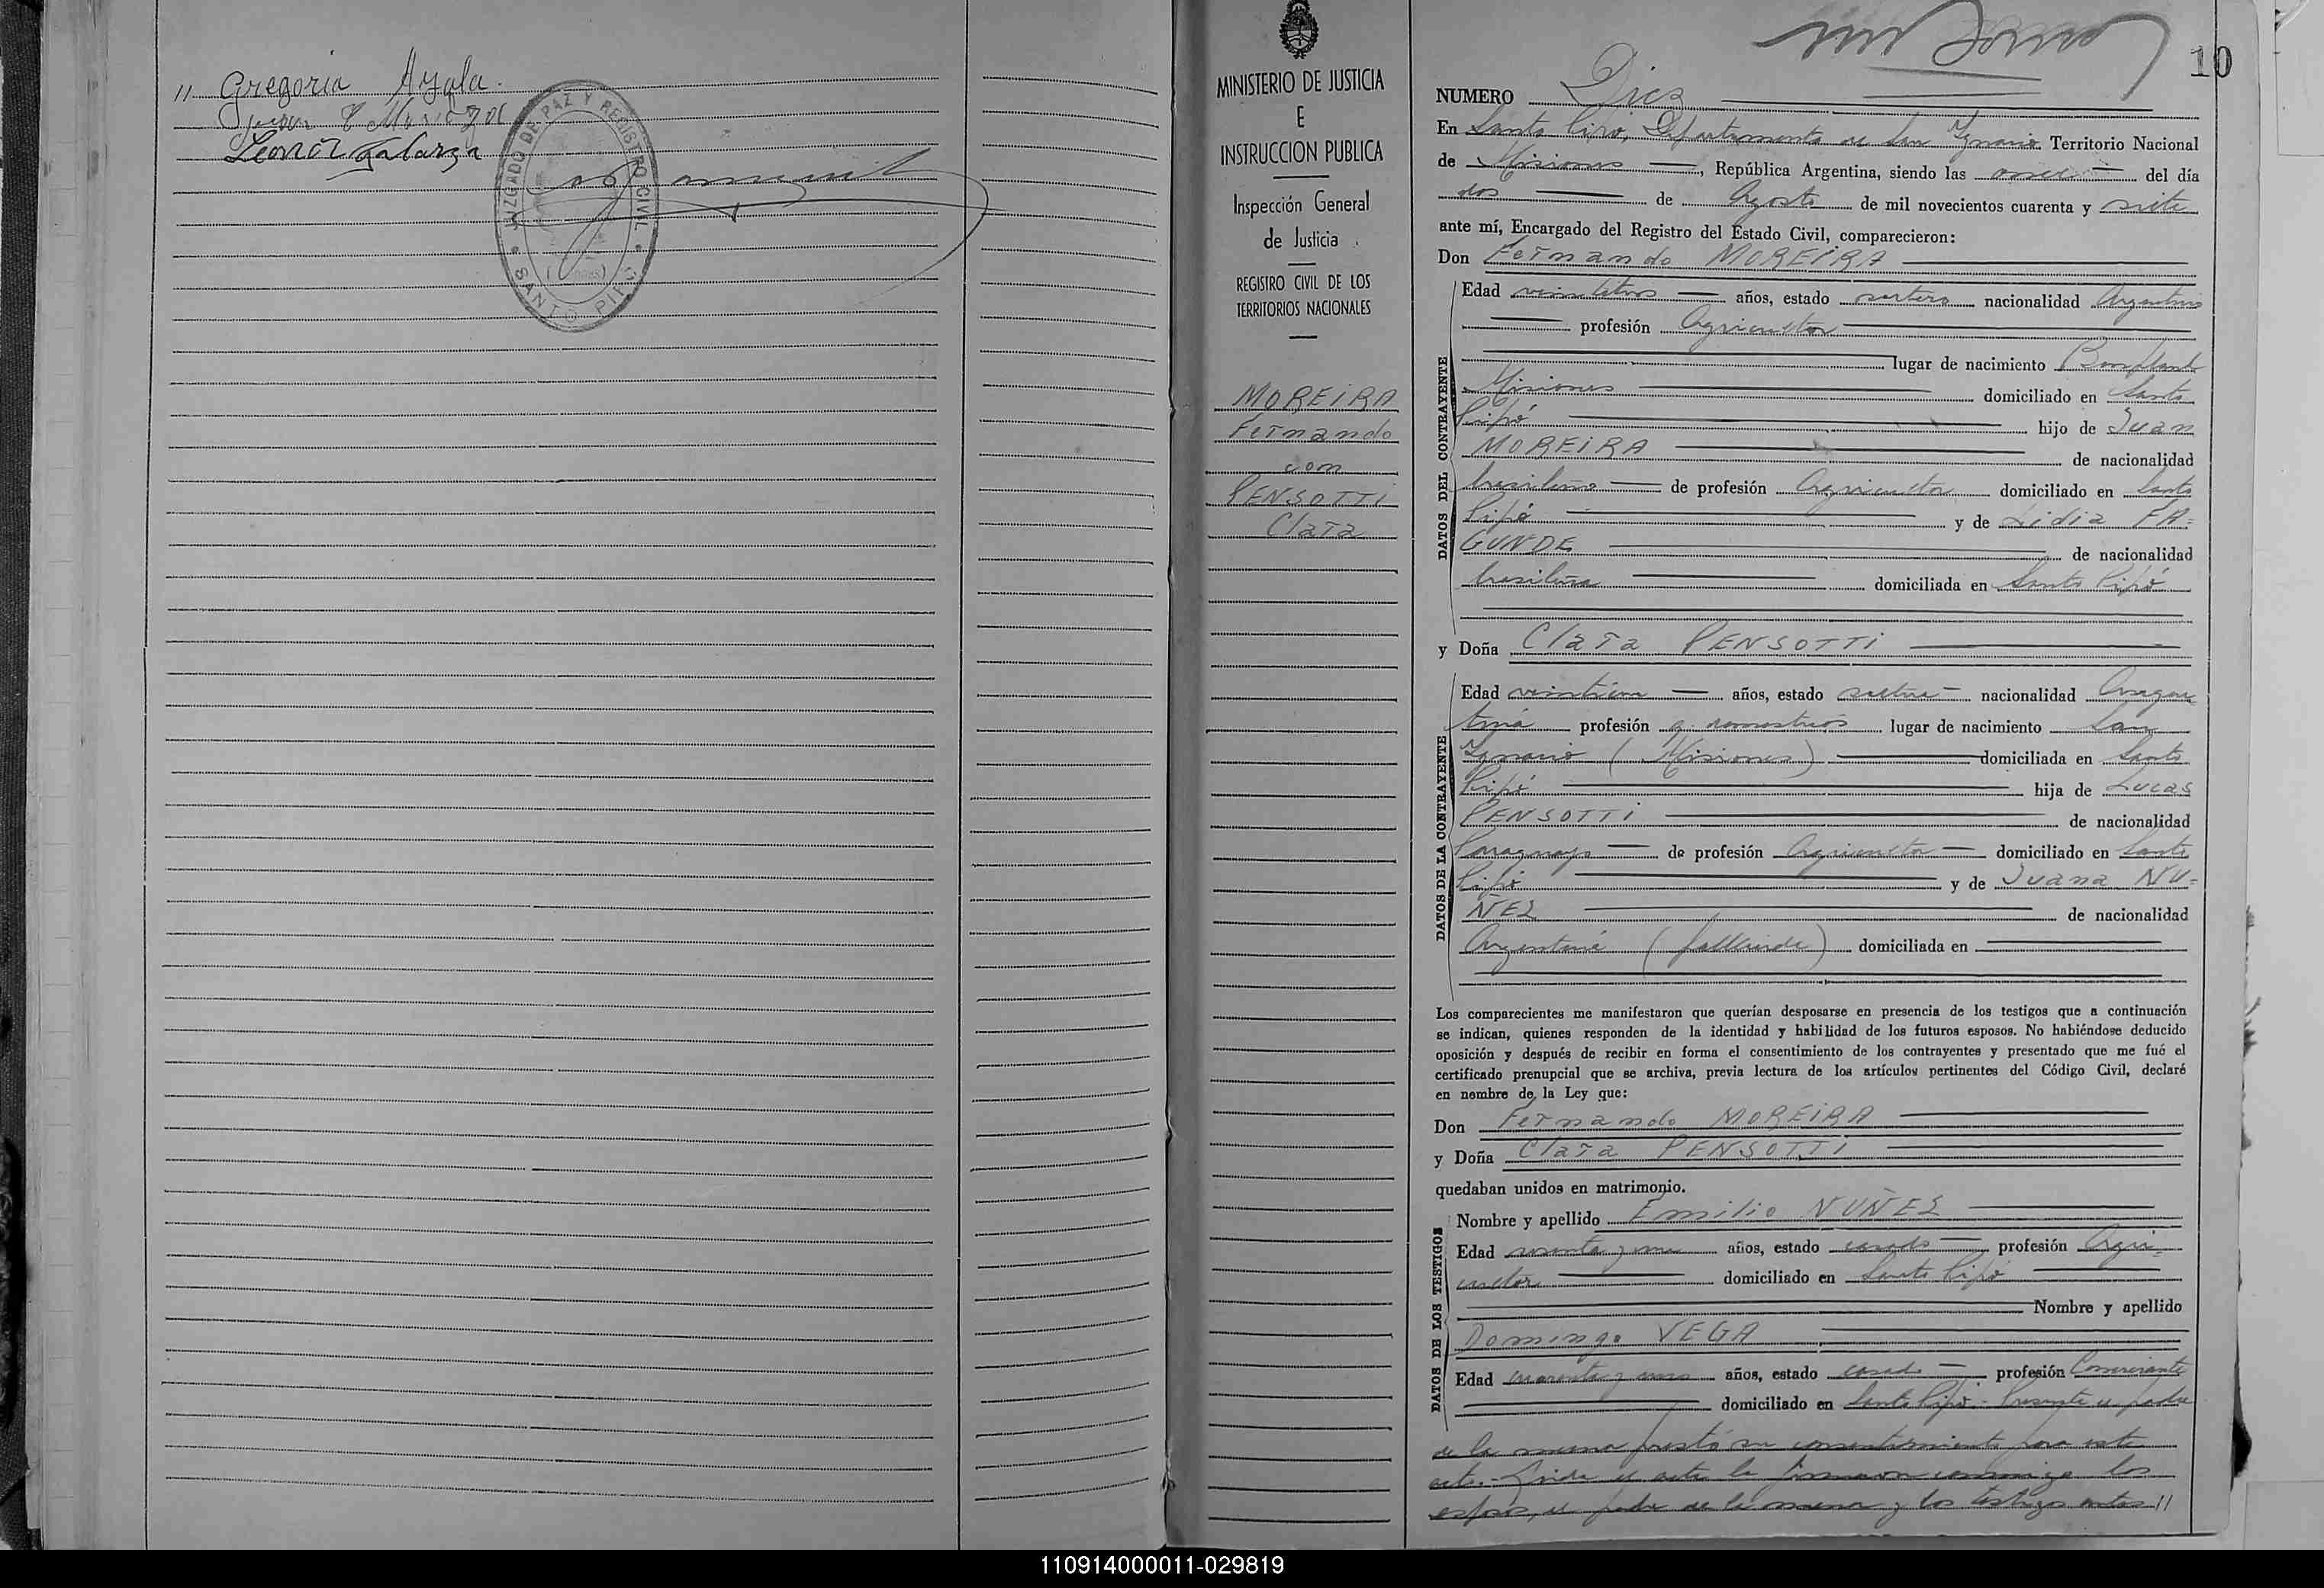 " Gregoria Ayala.
Leonor Galarza
JUZGADO DE PAZ Y REGISTRO CIVIL
SANTO PIPO
MINISTERIO DE JUSTICIA
E
INSTRUCCION PUBLICA
Inspección General
de Justicia
REGISTRO CIVIL DE LOS
TERRITORIOS NACIONALES
MOREIRA
Fernando
con
PENSOTTI
Clara
10
NUMERO Diez
En Santo Pipó, Departamento de San Ignacio Territorio Nacional
de Misiones, República Argentina, siendo las once del día
dos de Agosto de mil novecientos cuarenta y siete
ante mí, Encargado del Registro del Estado Civil, comparecieron:
Don Fernando MOREIRA
DATOS DEL CONTRAYENTE
Edad veintitres años, estado soltero nacionalidad Argentino
profesión Agricultor
lugar de nacimiento Bonpland
Misiones domiciliado en Santo
Pipó hijo de Juan
MOREIRA de nacionalidad
brasileño de profesión Agricultor domiciliado en Santo
Pipó y de Lidia FA=
GUNDE de nacionalidad
brasileña domiciliada en Santo Pipó
y Doña Clara PENSOTTI
DATOS DE LA CONTRAYENTE
Edad años, estado soltera nacionalidad Argen
tina profesión q. domesticos lugar de nacimiento San
Ignacio (Misiones) domiciliada en Santo
Pipó hija de Lucas
PENSOTTI de nacionalidad
Paraguayo de profesión Agricultor domiciliado en Santo
Pipó y de Juana NU=
ÑEZ de nacionalidad
Argentina (fallecida) domiciliada en
Los comparecientes me manifestaron que querían desposarse en presencia de los testigos que a continuación
se indican, quienes responden de la identidad y habilidad de los futuros esposos. No habiéndose deducido
oposición y después de recibir en forma el consentimiento de los contrayentes y presentado que me fué el
certificado prenupcial que se archiva, previa lectura de los artículos pertinentes del Código Civil, declaré
en nombre de la Ley que:
Don Fernando MOREIRA
y Doña Clara PENSOTTI
quedaban unidos en matrimonio.
DATOS DE LOS TESTIGOS
Nombre y apellido Emilio NUÑEZ
Edad años, estado casado profesión Agri-
cultor domiciliado en Santo Pipó
Nombre y apellido
Domingo VEGA
Edad cuarenta y años, estado casado profesión Comerciante
domiciliado en Santo Pipó - Presente el padre
de la menor prestó su consentimiento para este
acto.- Leida el acta la firmaron conmigo los
esposos, el padre de la menor y los testigos antes "
110914000011-029819